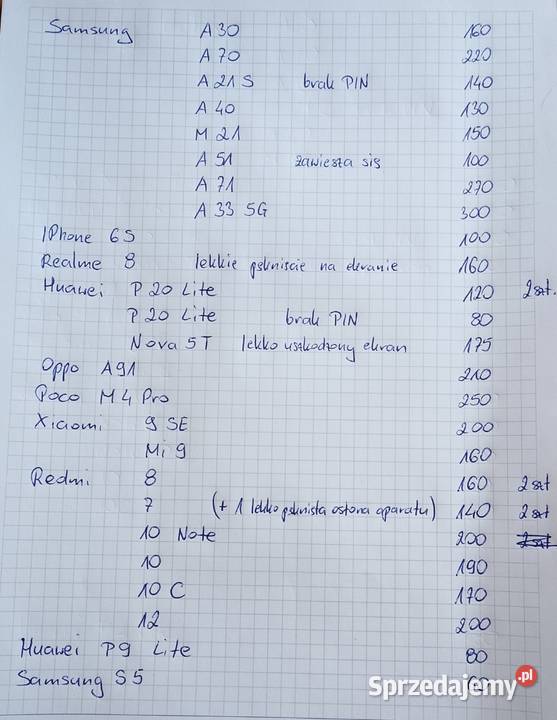 Samsung A30 160
A70 220
A21S brak PIN 140
A40 130
M21 150
A51 zawiesza się 100
A71 270
A33 5G 300
IPhone 6S 100
Realme 8 lekkie pęknięcie na ekranie 160
Huawei P20 Lite 120 2szt.
P20 Lite brak PIN 80
Nova 5T lekko uszkodzony ekran 175
Oppo A91 210
Poco M4 Pro 250
Xiaomi 9 SE 200
Mi 9 160
Redmi 8 160 2szt
7 (+ 1 lekko pęknięta osłona aparatu) 140 2szt
10 Note 200 2szt
10 190
10 C 170
12 200
Huawei P9 Lite 80
Samsung S5
Sprzedajemy.pl